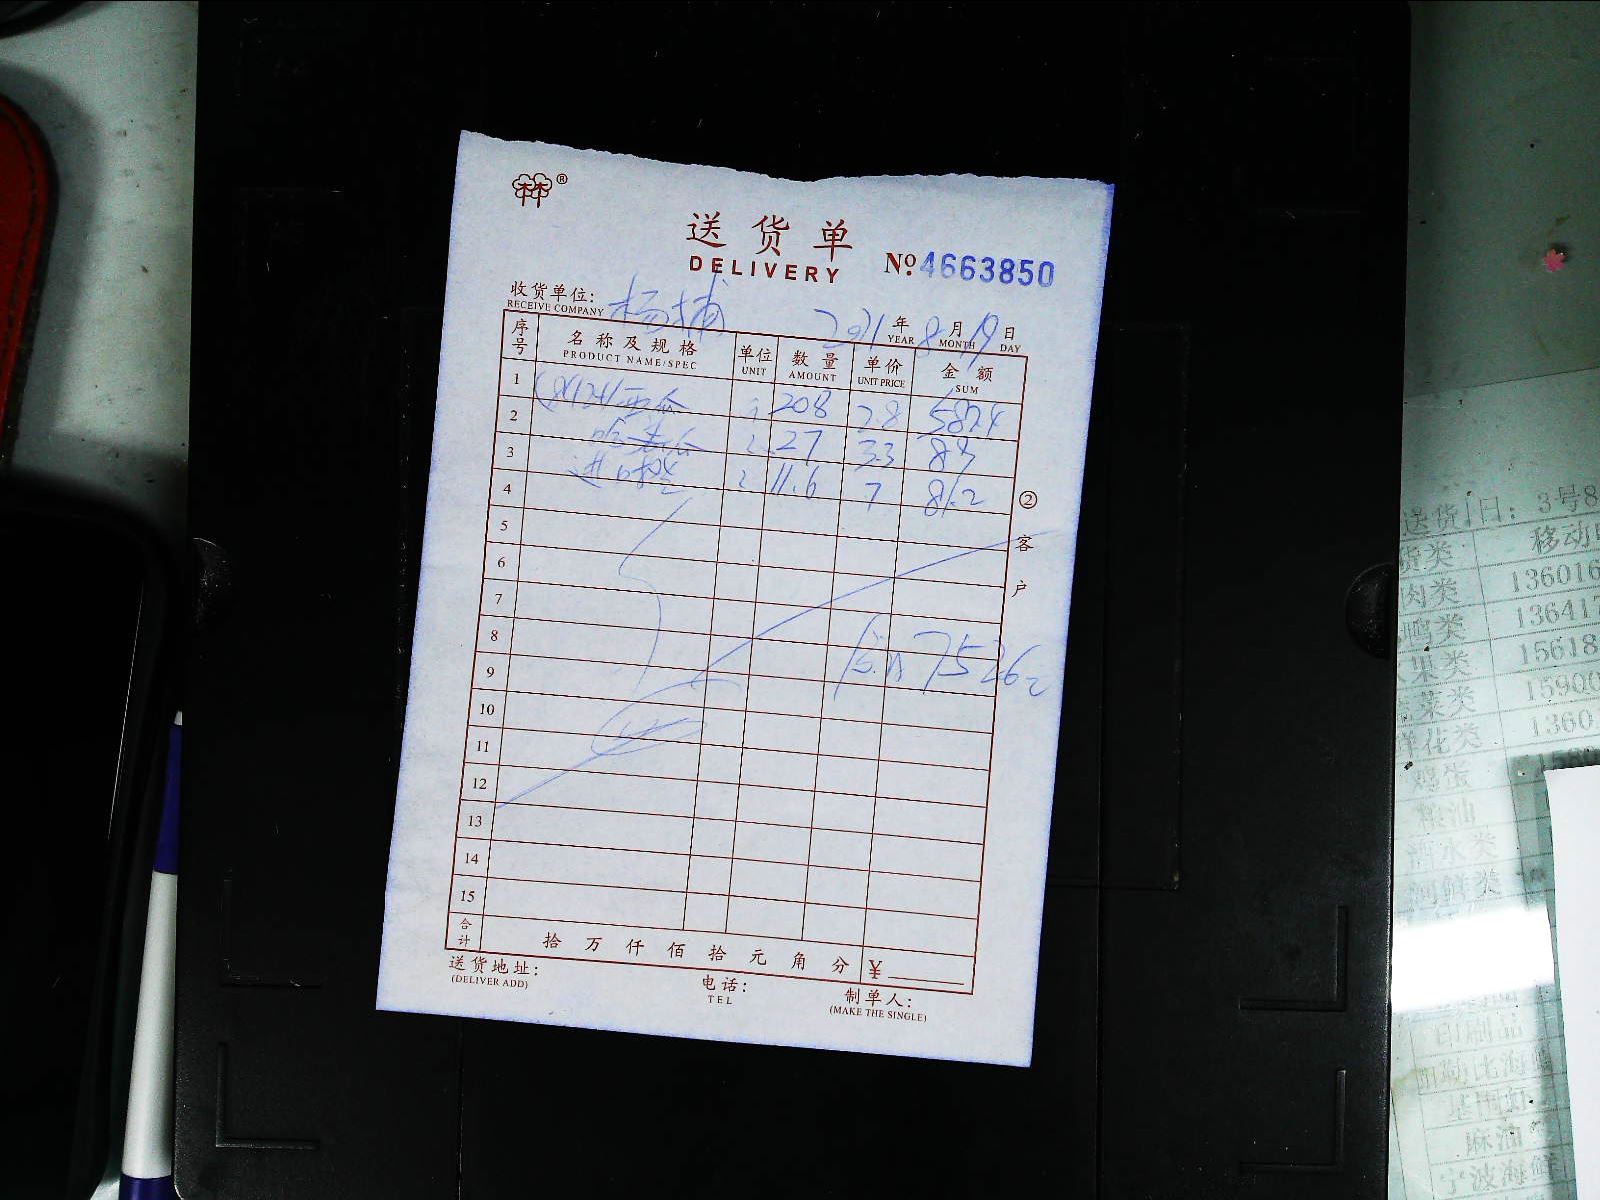 送货单
DELIVERY
No. 4663850
收货单位: 杨埔 2021年8月19日
RECEIVE COMPANY YEAR MONTH DAY
序号 名称及规格 单位 数量 单价 金额
PRODUCT NAME/SPEC UNIT AMOUNT UNIT PRICE SUM
1 西瓜 208 2.8 582.4
2 哈密瓜 27 3.3 89
3 进口橙 11.6 7 81.2
4
5
6
7
8 7526
9
10
11
12
13
14
15
合计 拾 万 仟 佰 拾 元 角 分 ¥
送货地址: 电话: 制单人:
(DELIVER ADD) TEL (MAKE THE SINGLE)
②客户
送货1日: 3号8
货类 移动
肉类 136016
鸭类 136417
果类 15618
菜类 15900
洋花类 1360
鸡蛋
粮油
酒水类
河鲜类
印制品
麻油
宁波海鲜